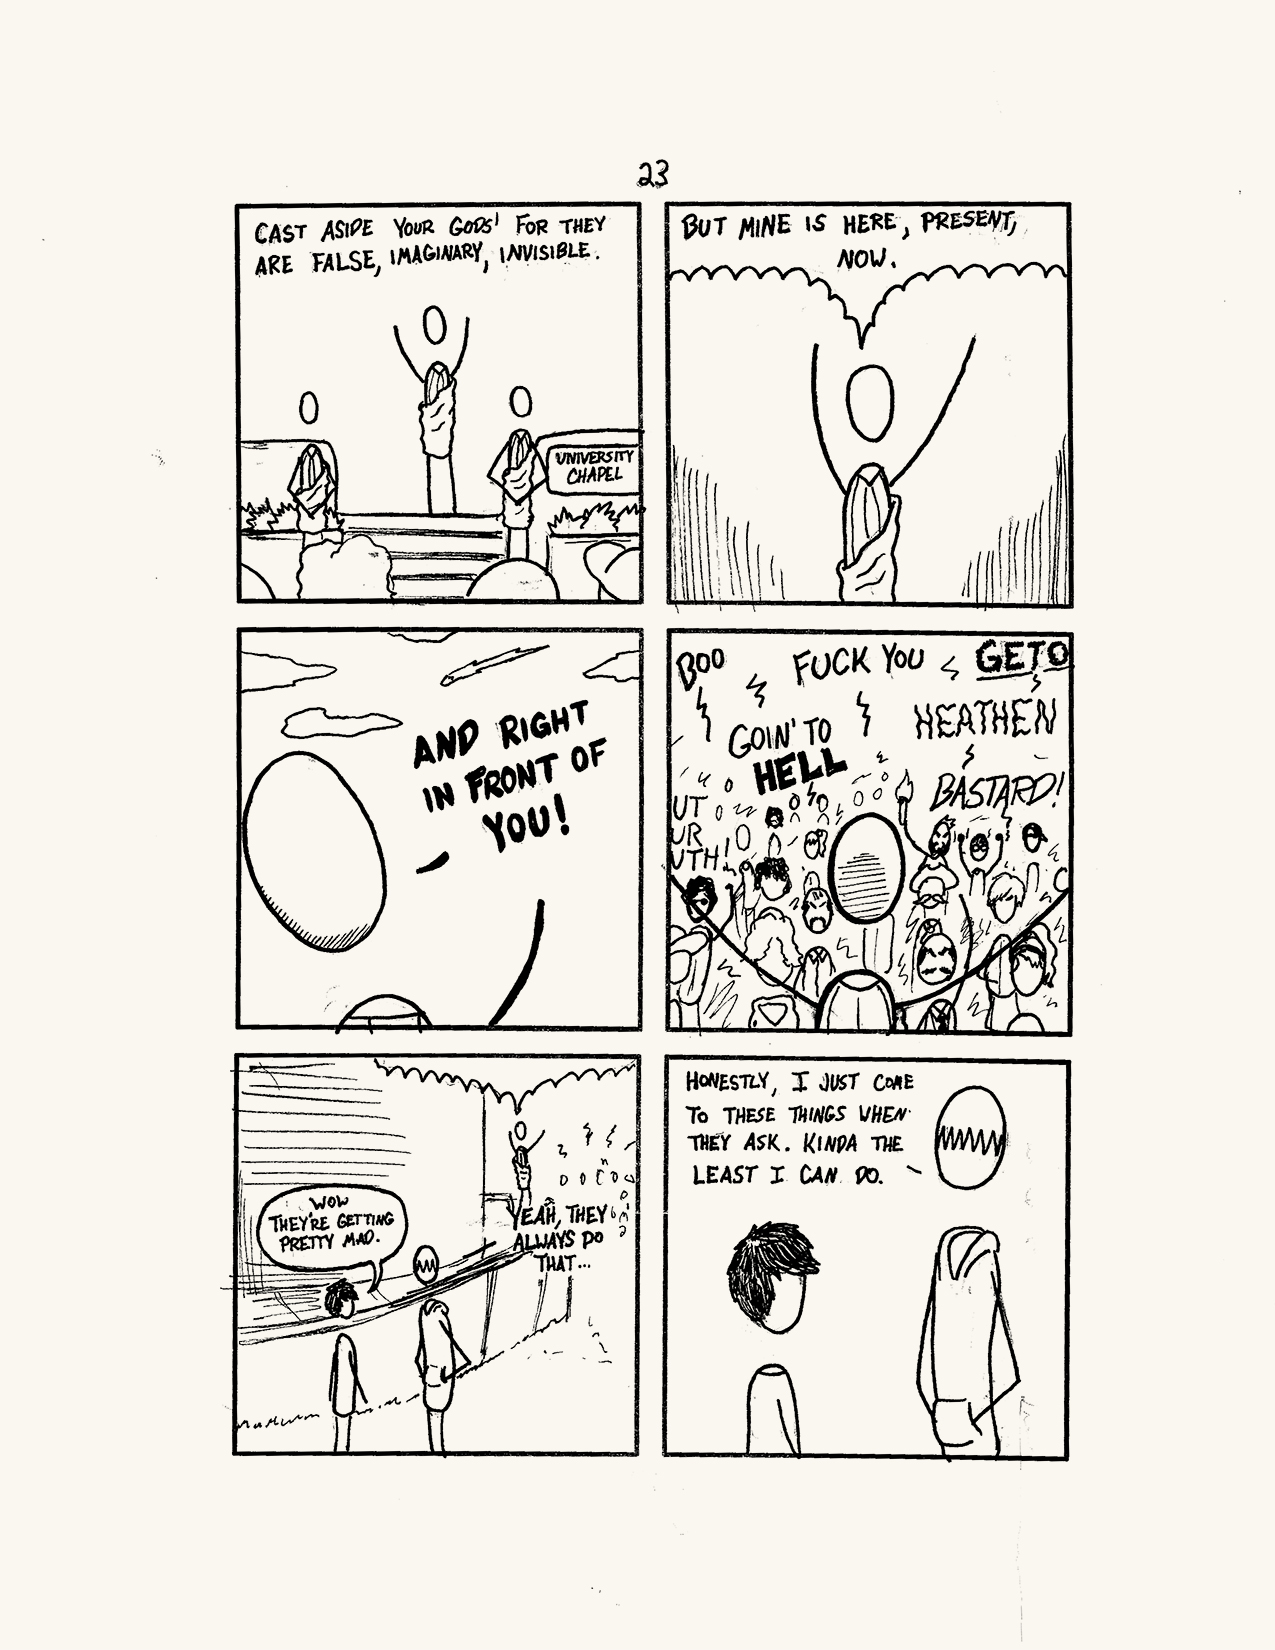 23
CAST ASIDE YOUR GODS' FOR THEY
ARE FALSE, IMAGINARY, INVISIBLE.
UNIVERSITY
CHAPEL
BUT MINE IS HERE, PRESENT,
NOW.
AND RIGHT
IN FRONT OF
YOU!
BOO
FUCK YOU
GETO
HEATHEN
GOIN' TO
HELL
BASTARD!
UT
UR
UTH!
WOW
THEY'RE GETTING
PRETTY MAD.
YEAH, THEY
ALWAYS DO
THAT...
HONESTLY, I JUST COME
TO THESE THINGS WHEN
THEY ASK. KINDA THE
LEAST I CAN DO.